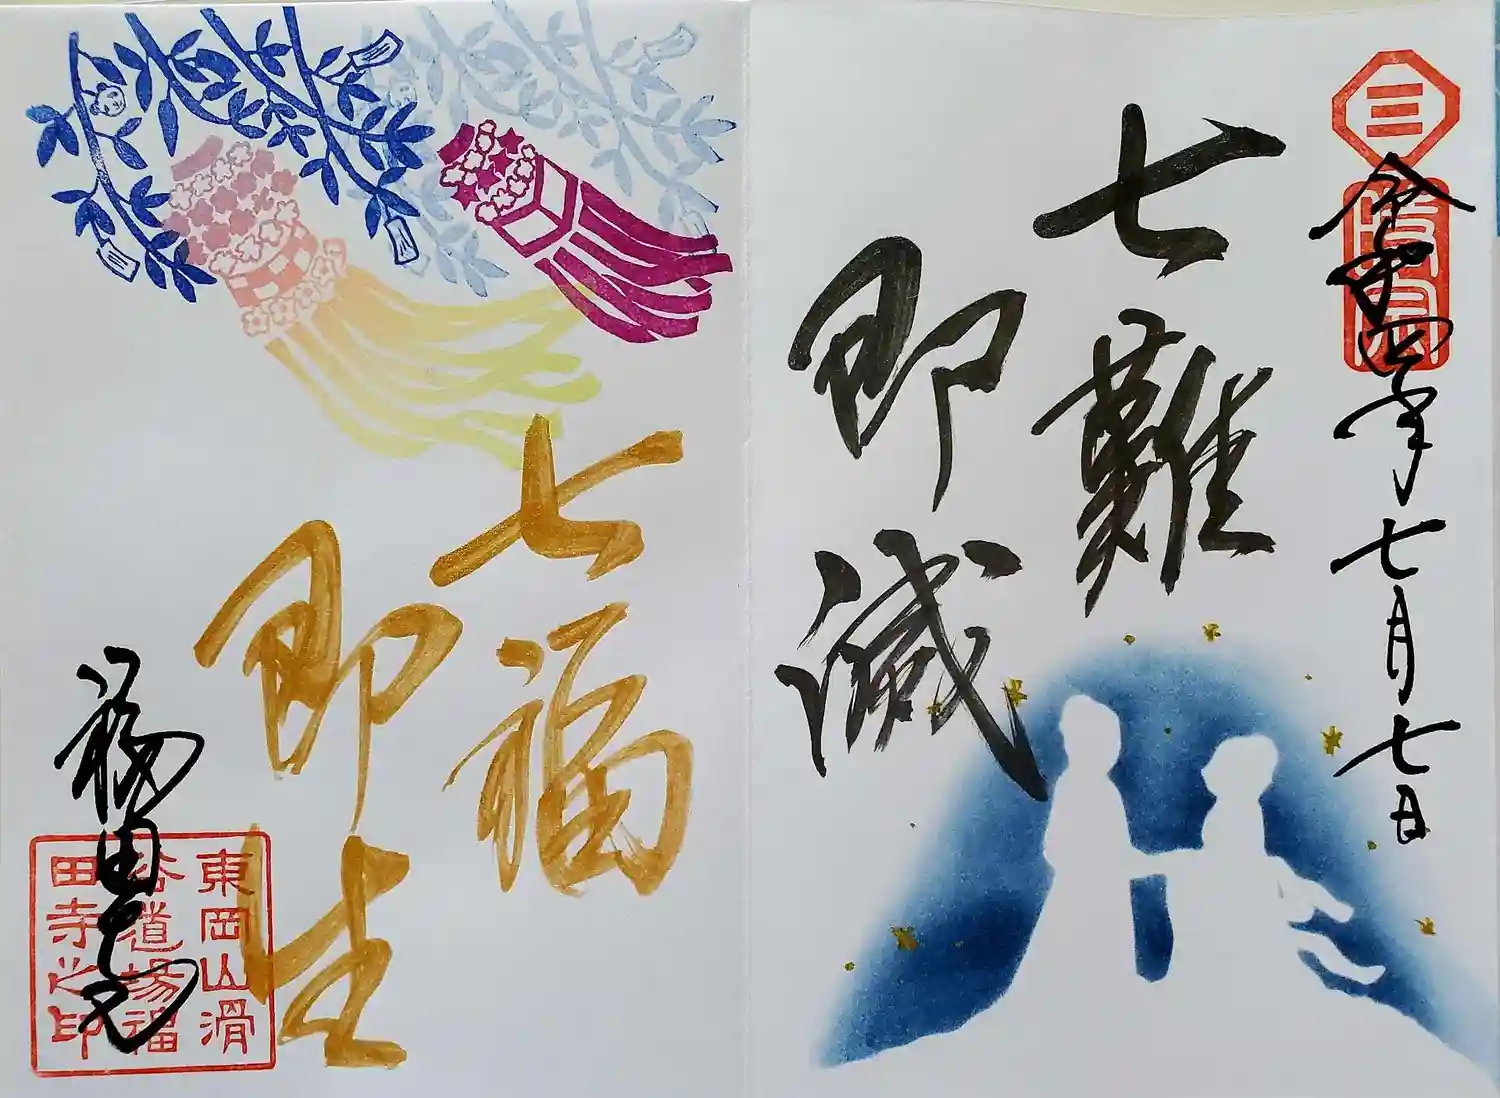 令和四年七月七日
七難
即滅
三
時宗
七福
即生
福田寺
東岡山滑
谷道場福
田寺之印